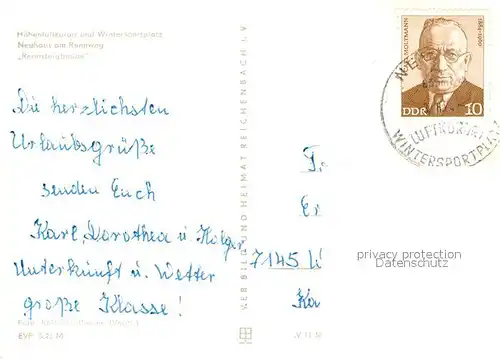 Höhenluftkurort und Wintersportplatz
Neuhaus am Rennweg
„Rennsteigbaude“
Die herzlichsten
Urlaubsgrüße
senden Euch
Karl, Dorothea u. Holger
Unterkunft u. Wetter
große Klasse!
EVP 0,20 M
VEB BILD UND HEIMAT REICHENBACH I. V.
MOLTMANN
1884-1960
DDR
10
LUFTKURORT
WINTERSPORTPLA
Fa
Er
7145
Ka
privacy protection
Datenschutz